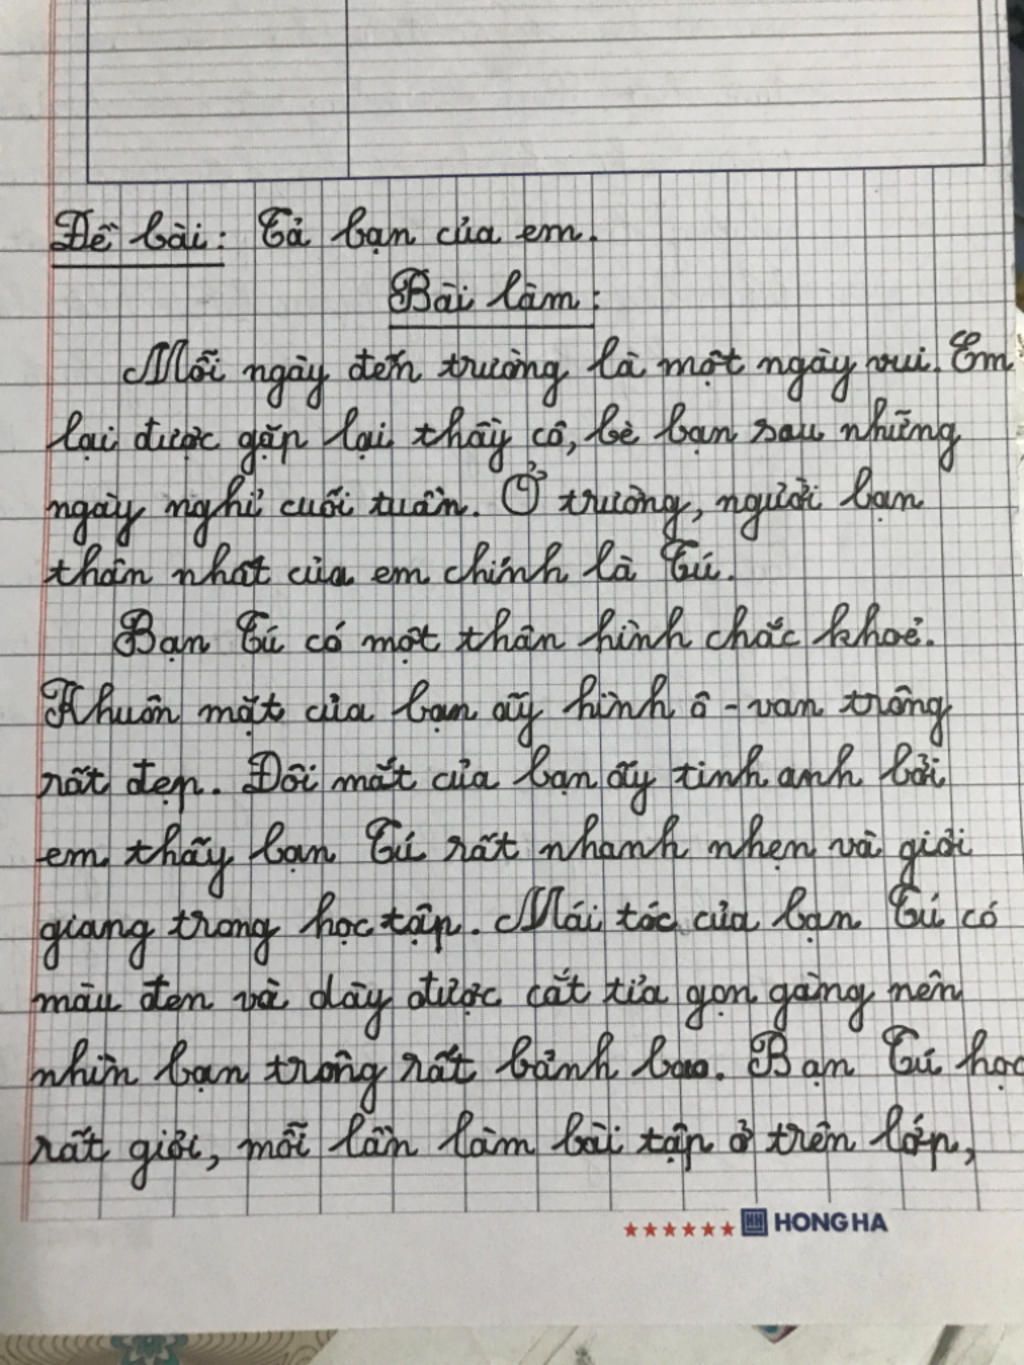 Đề bài: Tả bạn của em.
Bài làm:
Mỗi ngày đến trường là một ngày vui. Em
lại được gặp lại thầy cô, bè bạn sau những
ngày nghỉ cuối tuần. Ở trường, người bạn
thân nhất của em chính là Tú.
Bạn Tú có một thân hình chắc khoẻ.
Khuôn mặt của bạn ấy hình ô-van trông
rất đẹp. Đôi mắt của bạn ấy tinh anh bởi
em thấy bạn Tú rất nhanh nhẹn và giỏi
giang trong học tập. Mái tóc của bạn Tú có
màu đen và dày được cắt tỉa gọn gàng nên
nhìn bạn trông rất bảnh bao. Bạn Tú học
rất giỏi, mỗi lần làm bài tập ở trên lớp,
HH HONG HA